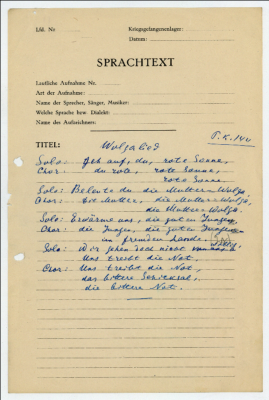 Lfd. Nr.
Kriegsgefangenenlager:
Datum:
SPRACHTEXT
Lautliche Aufnahme Nr.
Art der Aufnahme:
Name der Sprecher, Sänger, Musiker:
Welche Sprache bzw. Dialekt:
Name des Aufzeichners:
P.K. 1411
TITEL: Wolgalied
Solo: Geh auf, du, rote Sonne,
Chor: du rote, rote Sonne,
rote Sonne
Solo: Beleuchte du die Mutter-Wolga
Chor: die Mutter, die Mutter-Wolga,
die Mutter-Wolga.
Solo: Erwärme uns, die guten Jungen
Chor: die Jungen, die guten Jungen
im fremden Lande.
Solo: Wir gehen doch nicht
Uns treibt die Not.
Chor: Uns treibt die Not,
das bittere Schicksal,
die bittere Not.